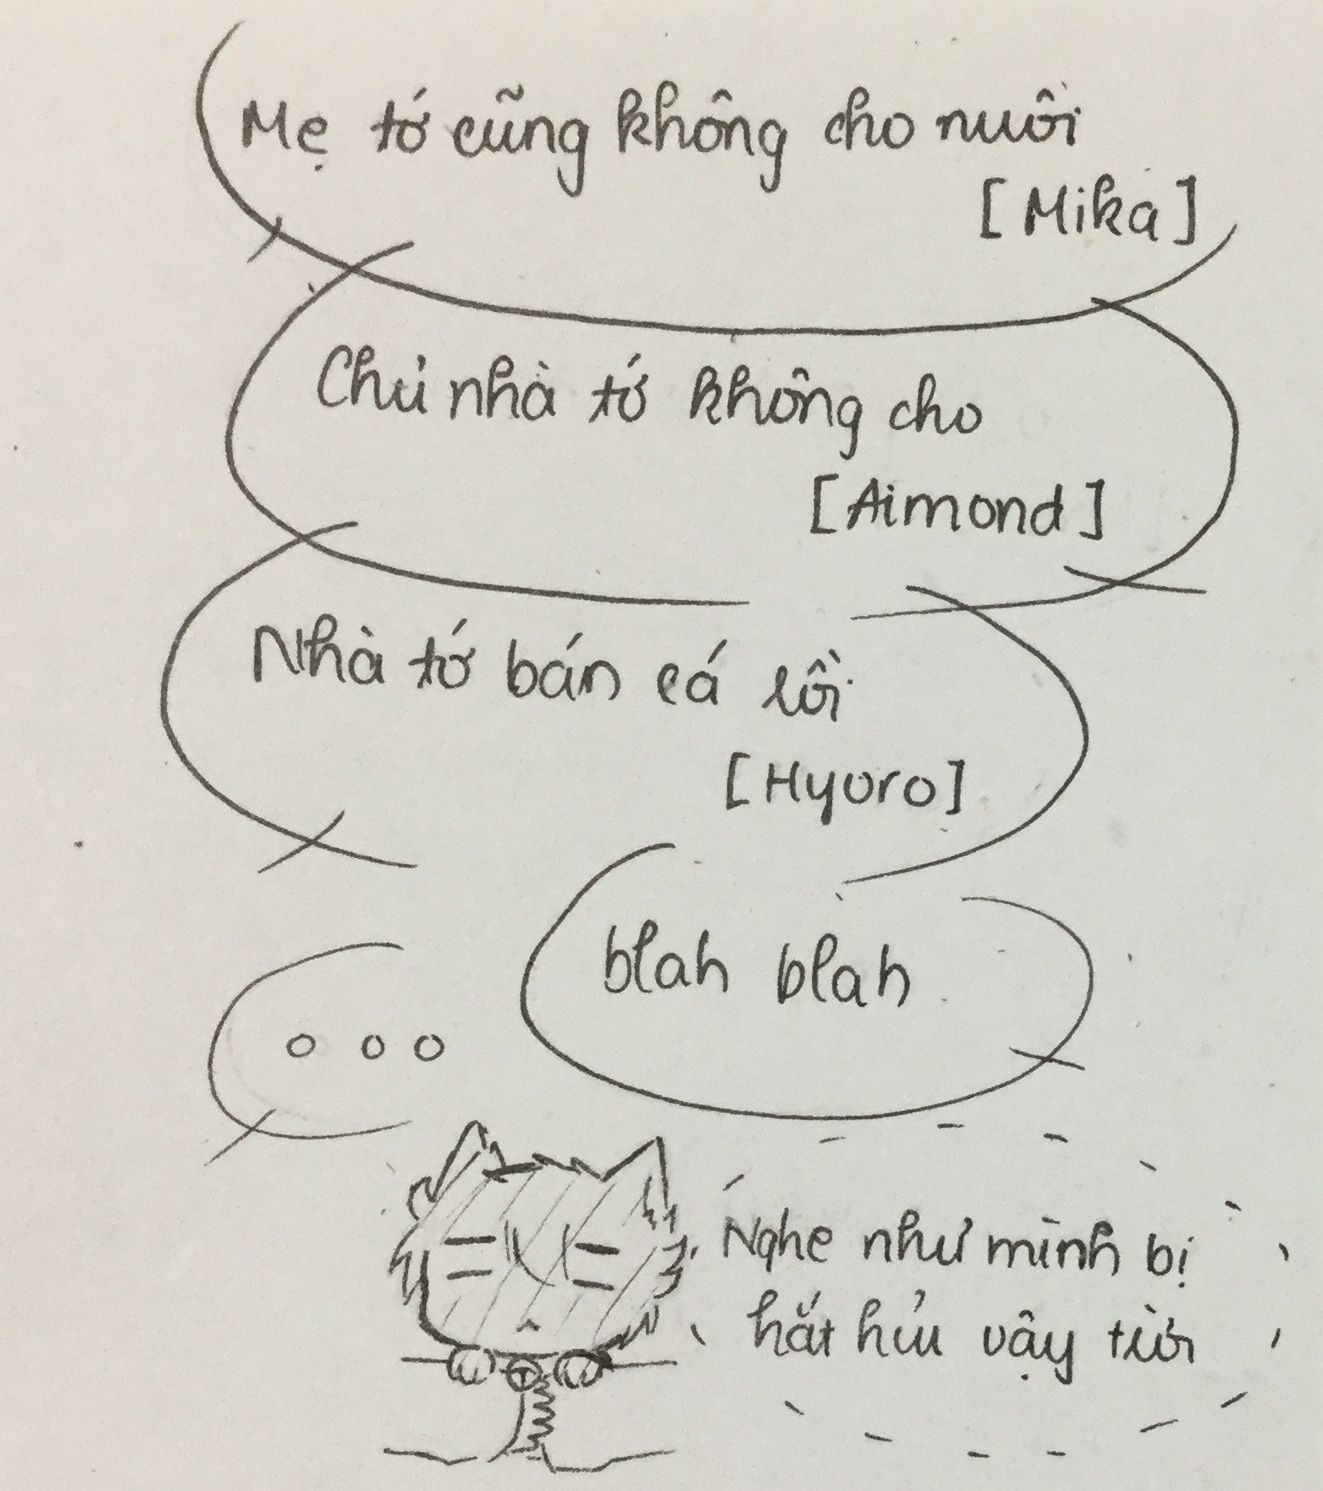 Mẹ tớ cũng không cho nuôi
[Mika]
Chủ nhà tớ không cho
[Aimond]
Nhà tớ bán cá rồi
[Hyoro]
blah blah
ooo
Nghe như mình bị
hắt hủi vậy trời